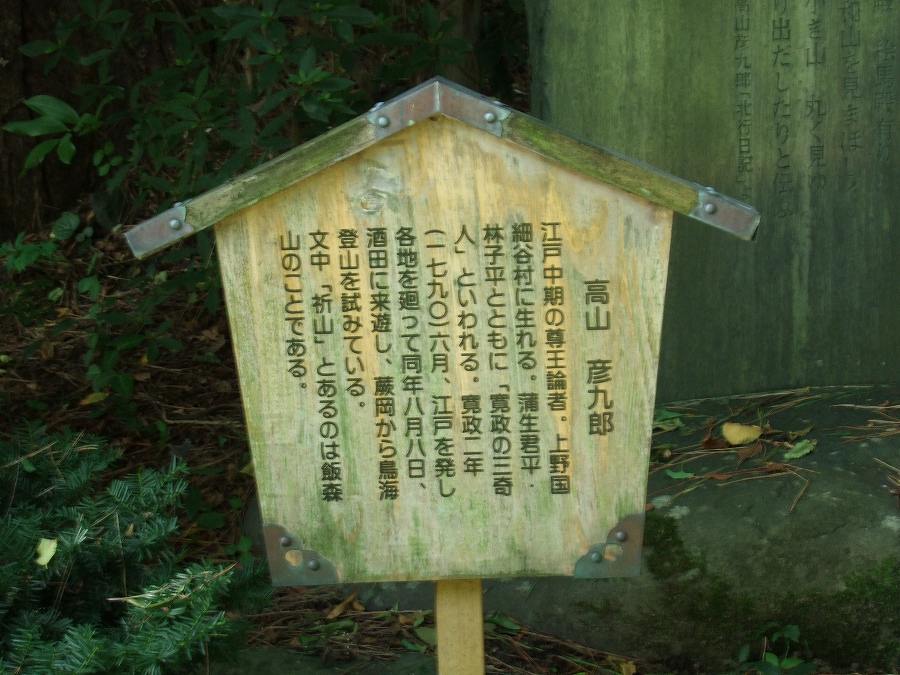 高山 彦九郎
江戸中期の尊王論者。上野国
細谷村に生れる。蒲生君平・
林子平とともに「寛政の三奇
人」といわれる。寛政二年
(一七九〇)六月、江戸を発し
各地を廻って同年八月八日、
酒田に来遊し、蕨岡から鳥海
登山を試みている。
文中「祈山」とあるのは飯森
山のことである。
和山を見まほし
小き山 丸く見ゆ
り出だしたりと云ふ
高山彦九郎「北行日記」